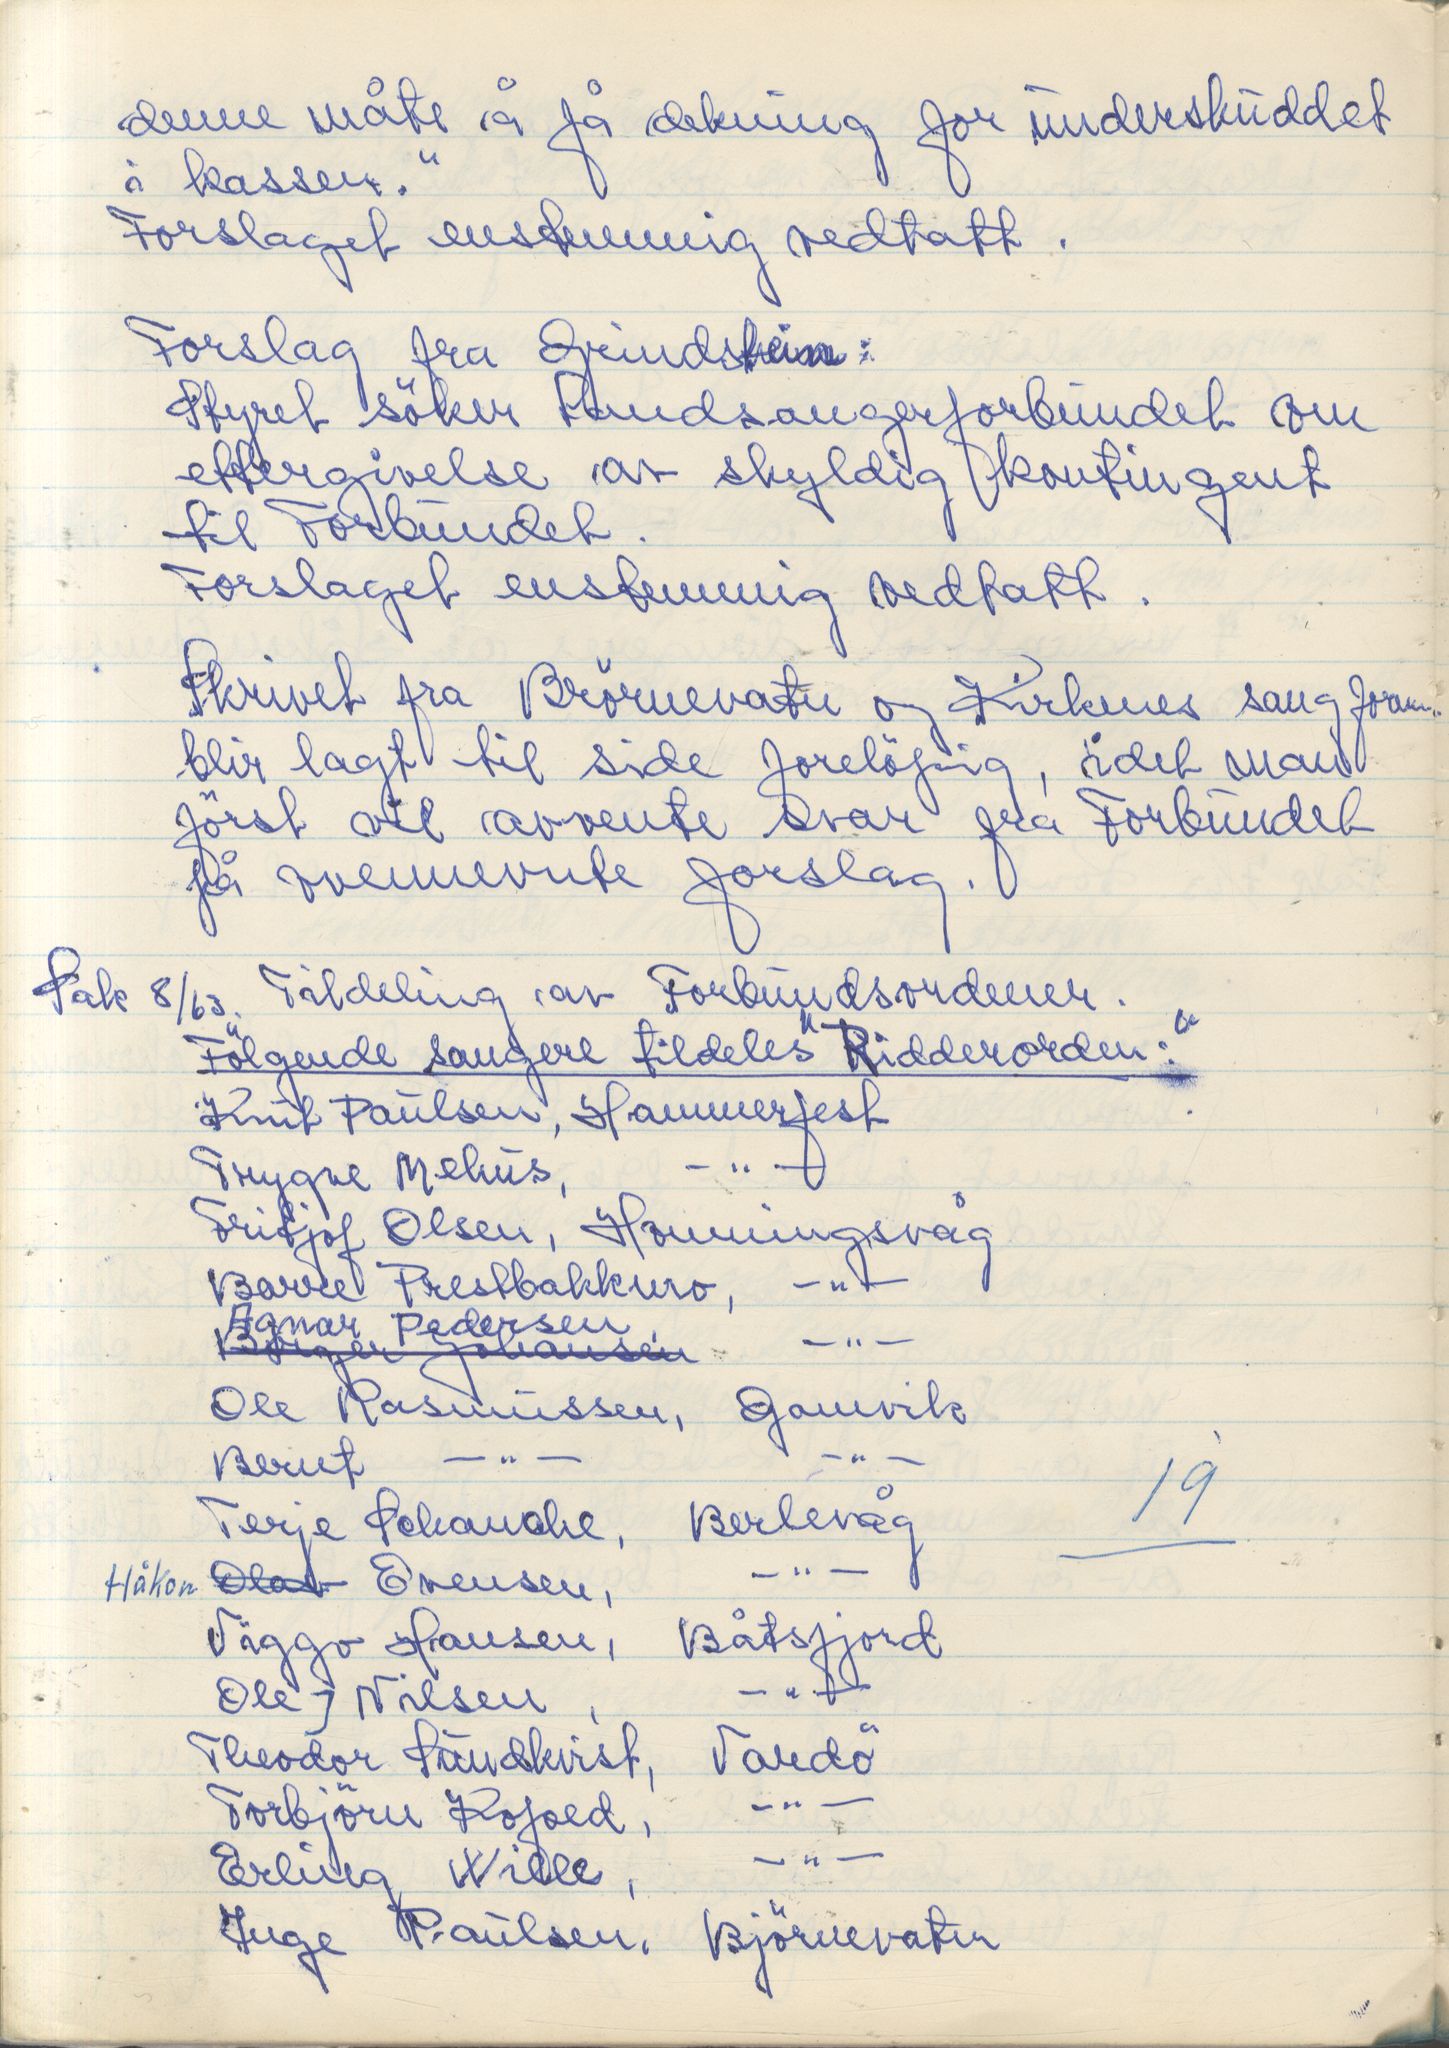 denne måte å få dekning for underskuddet
i kassen."
Forslaget enstemmig vedtatt.
Forslag fra Grindstein:
Styret söker Landsangerforbundet om
ettergivelse av skyldig kontingent
til Forbundet.
Forslaget enstemmig vedtatt.
Skrivet fra Björnevatn og Kirkenes sangforen.
blir lagt til side forelöpig, idet man
först vil avvente svar fra Forbundet
på ovennevnte forslag.
Sak 8/63. Tildeling av Forbundsordener.
Fölgende sangere tildeles "Ridderorden:"
Knut Paulsen, Hammerfest
Trygve Mehus, —"—
Fritjof Olsen, Honningsvåg
Barre Prestbakkmo, —"—
Agnar Pedersen,
Börger Johansen —"—
Ole Rasmussen, Gamvik
Bernt —"— —"—
Terje Schanche, Berlevåg
Håkon Olav Evensen, —"—
Viggo Hansen, Båtsfjord
Ole J Nilsen, —"—
Theodor Sundkvist, Vardö
Torbjörn Kofoed, —"—
Erling Wille, —"—
Inge Paulsen, Björnevatn
19